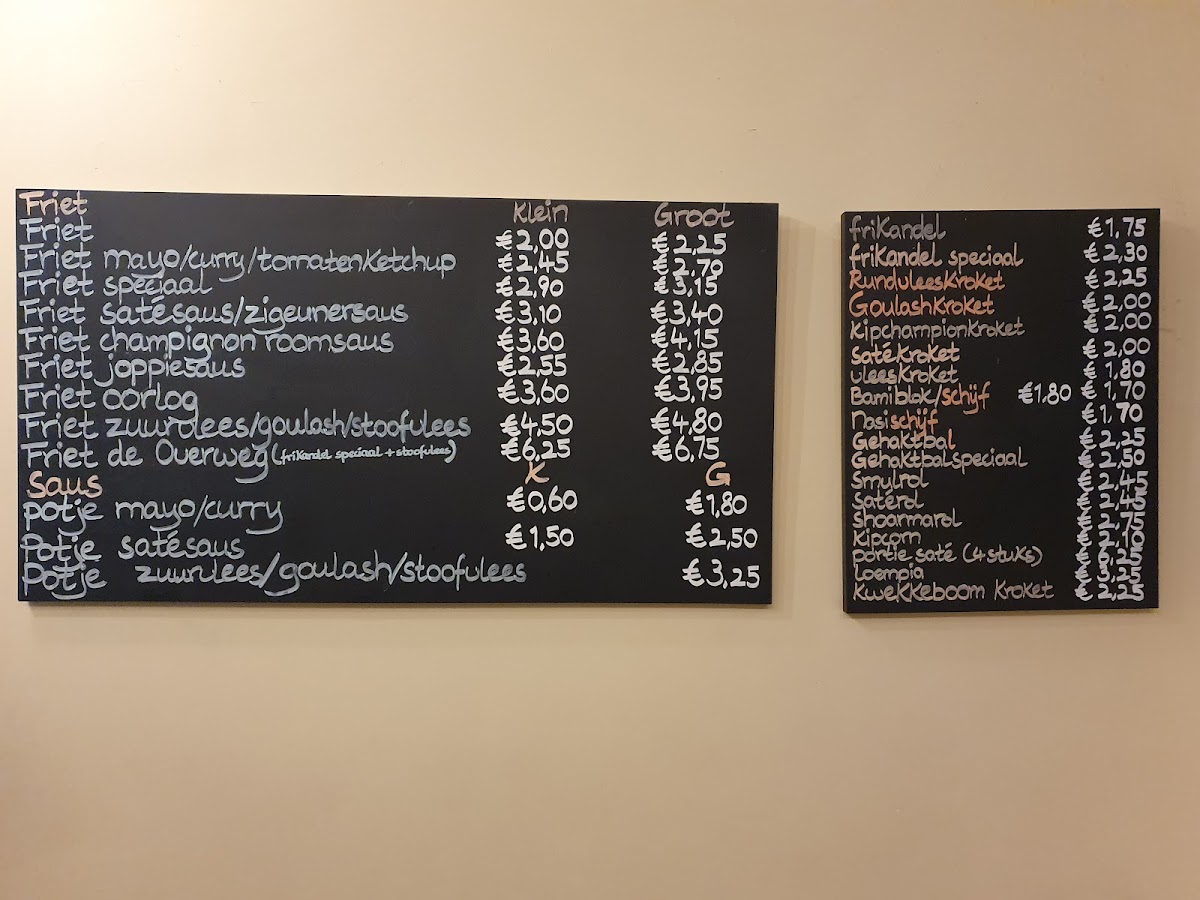 Friet Klein Groot
Friet €2,00 €2,25
Friet mayo/curry/tomatenketchup €2,45 €2,70
Friet speciaal €2,90 €3,15
Friet satésaus/zigeunersaus €3,10 €3,40
Friet champignon roomsaus €3,60 €4,15
Friet joppiesaus €2,55 €2,85
Friet oorlog €3,60 €3,95
Friet zuurvlees/goulash/stoofvlees €4,50 €4,80
Friet de Overweg (frikandel speciaal + stoofvlees) €6,25 €6,75
Saus K G
potje mayo/curry €0,60 €1,80
Potje satésaus €1,50 €2,50
Potje zuurvlees/goulash/stoofvlees €3,25
frikandel €1,75
frikandel speciaal €2,30
Rundvleeskroket €2,25
Goulashkroket €2,00
Kipchampionkroket €2,00
Satékroket €2,00
vleeskroket €1,80
Bamiblok/schijf €1,80 €1,70
Nasischijf €1,70
Gehaktbal €2,25
Gehaktbalspeciaal €2,50
Smulrol €2,45
Satérol €2,45
shoarmarol €2,75
kipcorn €2,10
portie saté (4 stuks)
Loempia
Kwekkeboom kroket €2,25